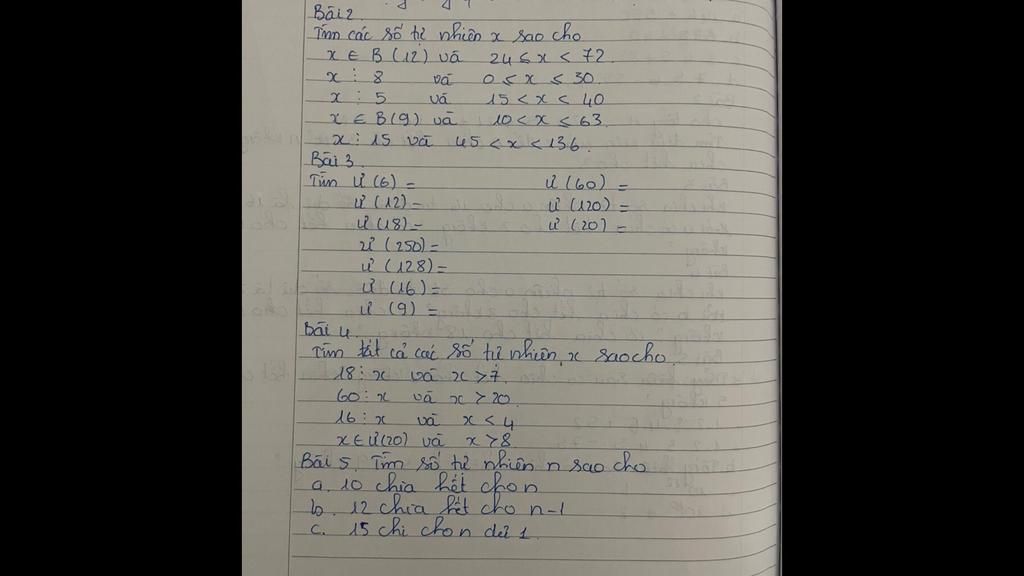 Bài 2.
Tìm các số tự nhiên x sao cho
x ∈ B (12) và 24 ≤ x < 72
x ⋮ 8 và 0 ≤ x ≤ 30.
x ⋮ 5 và 15 < x < 40
x ∈ B(9) và 10 < x ≤ 63.
x ⋮ 15 và 45 < x < 136.
Bài 3.
Tìm Ư (6) = Ư (60) =
Ư (12) = Ư (120) =
Ư (18) = Ư (20) =
Ư (250) =
Ư (128) =
Ư (16) =
Ư (9) =
Bài 4.
Tìm tất cả các số tự nhiên x sao cho
18 ⋮ x và x > 7.
60 ⋮ x và x > 20.
16 ⋮ x và x < 4
x ∈ Ư(20) và x > 8.
Bài 5. Tìm số tự nhiên n sao cho
a. 10 chia hết cho n
b. 12 chia hết cho n-1
c. 15 chi cho n dư 1.